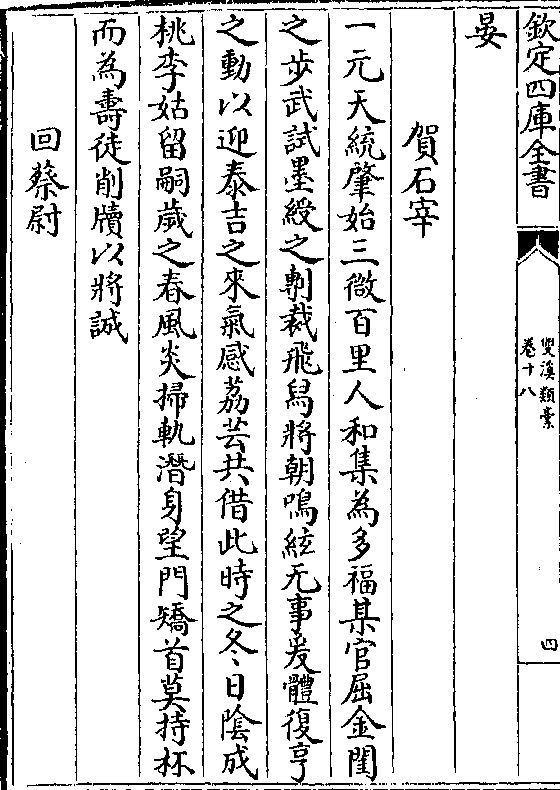 欽定四庫全書
雙溪類稾
卷十八
四
晏
賀石宰
一元天統肇始三微百里人和集為多福某官屈金閨
之步武試墨綬之剸裁飛舄將朝鳴絃无事爰體復亨
之動以迎泰吉之來氣感荔芸共借此時之冬日陰成
桃李姑留嗣歲之春風炎掃軌潛身望門矯首莫持杯
而為壽徒削牘以將誠
回蔡尉